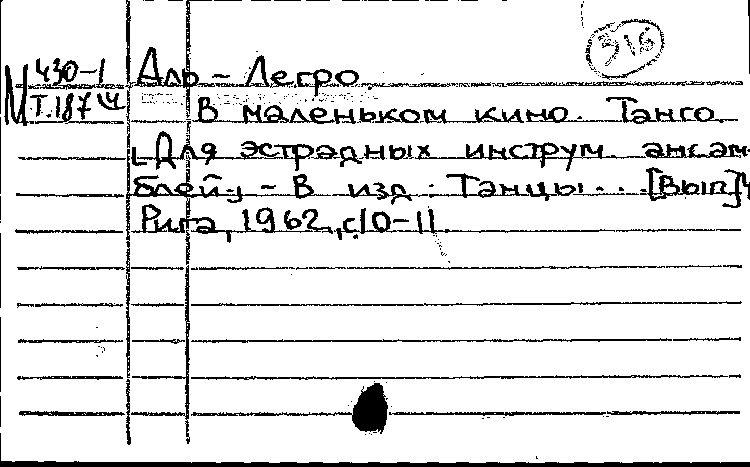 316
М 430-1
Т.187 Ч
Аль-Легро.
В маленьком кино. Танго.
[Для эстрадных инструм. ансам-
блей] - В изд.: Танцы... [Вып] 4
Рига, 1962, с.10-11.